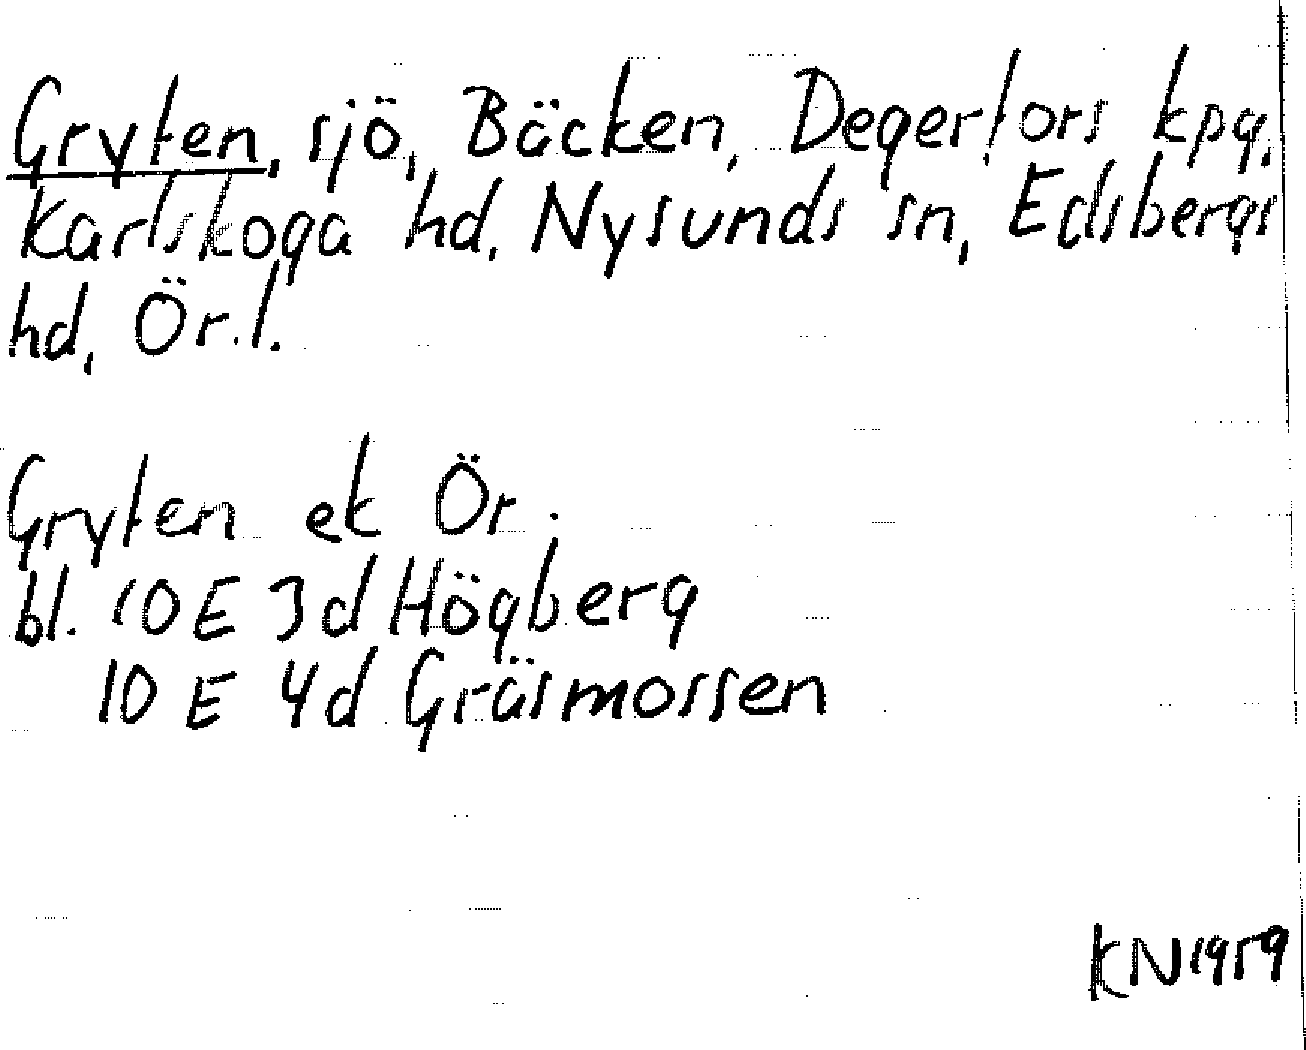 Gryten, sjö, Bäcken, Degerfors kpg,
Karlskoga hd, Nysunds sn, Edsbergs
hd, Ör.l.
Gryten ek Ör.
bl. 10 E 3d Högberg
10 E 4d Gräsmossen
KN 1959